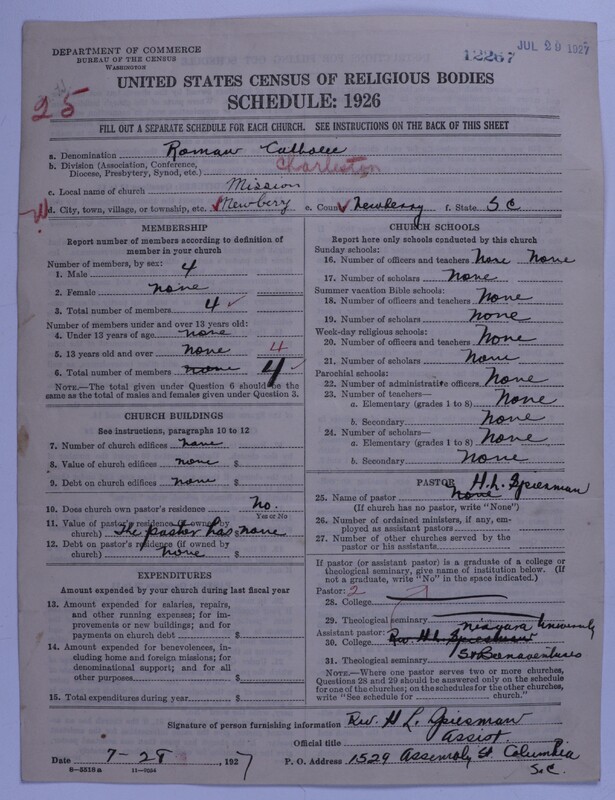 12267
JUL 29 1927
DEPARTMENT OF COMMERCE
BUREAU OF THE CENSUS
WASHINGTON
25
UNITED STATES CENSUS OF RELIGIOUS BODIES
SCHEDULE: 1926
FILL OUT A SEPARATE SCHEDULE FOR EACH CHURCH. SEE INSTRUCTIONS ON THE BACK OF THIS SHEET
a. Denomination Roman Catholic
b. Division (Association, Conference, Diocese, Presbytery, Synod, etc.) Charleston
c. Local name of church Mission
d. City, town, village, or township, etc. Newbery e. County Newberry f. State S C
MEMBERSHIP
Report number of members according to definition of member in your church
Number of members, by sex:
1. Male 4
2. Female none
3. Total number of members 4
Number of members under and over 13 years old:
4. Under 13 years of age none
5. 13 years old and over none 4
6. Total number of members none 4
NOTE.—The total given under Question 6 should be the same as the total of males and females given under Question 3.
CHURCH BUILDINGS
See instructions, paragraphs 10 to 12
7. Number of church edifices none
8. Value of church edifices none $
9. Debt on church edifices none $
10. Does church own pastor's residence No.
Yes or No
11. Value of pastor's residence (if owned by church) The pastor has none
12. Debt on pastor's residence (if owned by church) none $
EXPENDITURES
Amount expended by your church during last fiscal year
13. Amount expended for salaries, repairs, and other running expenses; for improvements or new buildings; and for payments on church debt $
14. Amount expended for benevolences, including home and foreign missions; for denominational support; and for all other purposes $
15. Total expenditures during year $
CHURCH SCHOOLS
Report here only schools conducted by this church
Sunday schools:
16. Number of officers and teachers None None
17. Number of scholars None
Summer vacation Bible schools:
18. Number of officers and teachers None
19. Number of scholars None
Week-day religious schools:
20. Number of officers and teachers None
21. Number of scholars None
Parochial schools:
22. Number of administrative officers None
23. Number of teachers—
a. Elementary (grades 1 to 8) None
b. Secondary None
24. Number of scholars—
a. Elementary (grades 1 to 8) None
b. Secondary None
PASTOR
25. Name of pastor None H. L. Spiesman
(If church has no pastor, write "None")
26. Number of ordained ministers, if any, employed as assistant pastors
27. Number of other churches served by the pastor or his assistants
If pastor (or assistant pastor) is a graduate of a college or theological seminary, give name of institution below. (If not a graduate, write "No" in the space indicated.)
Pastor: 2
28. College
29. Theological seminary
Assistant pastor: Niagara University
30. College Rev. H L Spiesman
31. Theological seminary St Bonaventures
NOTE.—Where one pastor serves two or more churches, Questions 28 and 29 should be answered only on the schedule for one of the churches; on the schedules for the other churches, write "See schedule for church."
Signature of person furnishing information Rev. H L. Spiesman
Official title Assist.
Date 7-28, 1927 P. O. Address 1529 Assembly St. Columbia S.C.
8—5518a 11—9054